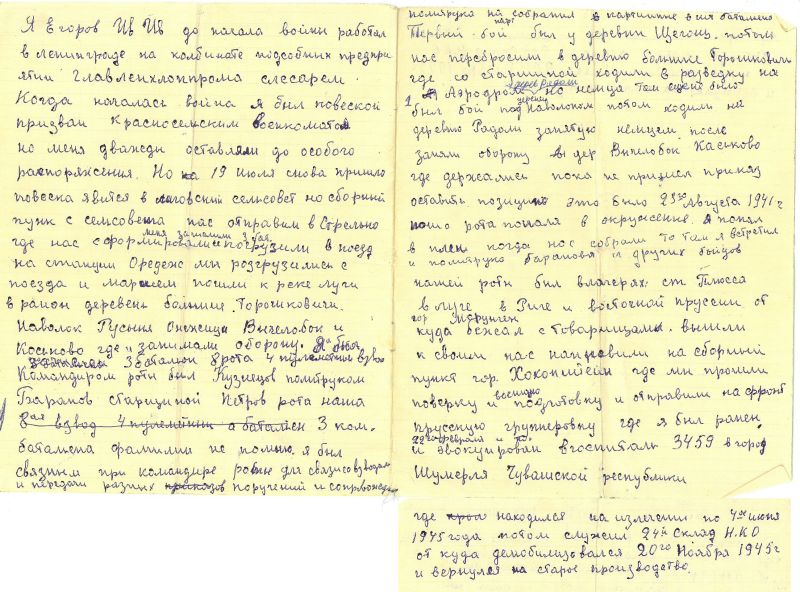 Я Егоров Ив Ив до начала войны работал
в Ленинграде на комбинате подсобных предпри
ятий Главленхлоппрома слесарем.
Когда началась война я был повеской
призван Красносельским военкоматом
но меня дважды оставляли до особого
распоряжения. Но на 19 июля снова пришло
повеска явится в лиговский сельсовет на сборный
пунк с сельсовета нас отправили в Стрельно
меня зачислили
где нас сформировали и погрузили в поезд
на станции Оредеж мы розгрузились с
поезда и маршем пошли к реке луги
в район деревень большие Торошковичи.
Наволок Пусыня Онежицы Вычелобок и
Коськово где занимали оборону. Я был
3 баталион 8 рота 4 пулеметный взвод
Командиром роты был Кузнецов политруком
Баранов старшиной Петров рота наша
взвод 4 пулеметных а баталиен 3 ком.
баталиена фамилии не помню я был
связным при командире роты для связи со взводами
и передачи разных приказов поручений и сопровожден
политрука на собрания в баталиено
парт
Первый бой был у деревни Щегощ. потом
нас перебросили в деревню большие Торошковичи
где со старшиной ходили в разведку на
Аэродром но немца там не было
был бой под Наволоком потом ходили на
деревню
деревню Радоли занятую немцем после
заняли оборону в дер Вычелобок Каськово
где держались пока не пришел приказ
оставить позицию это было 23го Августа 1941 г
наша рота попала в окружение. Я попал
в плен когда нас собрали то там я встретил
и политрука Баранова и других бойцов
нашей роты был в лагерях: ст. Плюсса
в луге в Риге и восточной пруссии от
гор
куда бежал с товарищами. вышли
к своим нас направили на сборный
пункт гор. где мы прошли
военную
поверку и подготовку и отправили на фронт
прусскую групперовку где я был ранен
22го февраля и
и эвокуирован в госпиталь 3459 в город
Шумерля Чувашской республики
где находился на излечении по 4ое июня
1945 года потом служил 24й склад Н.К.О
от куда демобилизовался 20го Ноября 1945 г
и вернулся на старое производство.